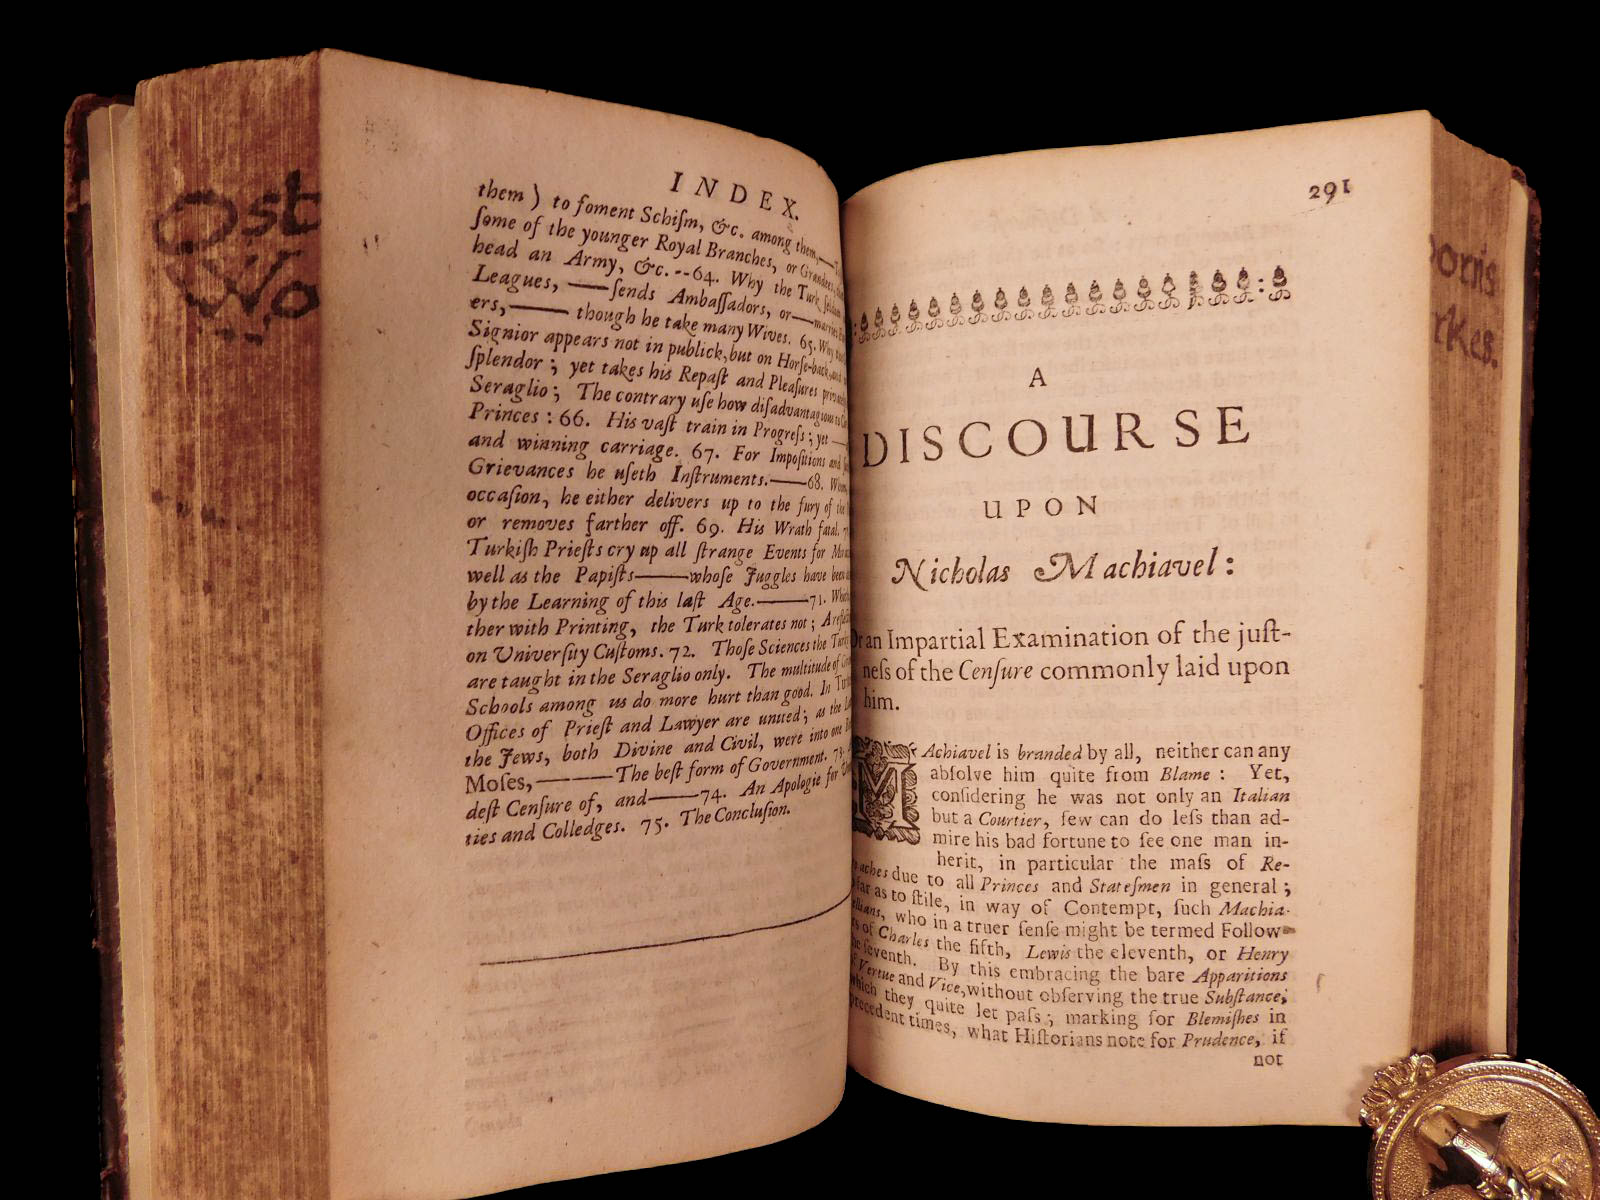 Ost
Wo
INDEX.
them ) to foment Schiſm, &c. among them,—
ſome of the younger Royal Branches, or Grandees,
head an Army, &c.--64. Why the Turk ſeldom
Leagues, —ſends Ambaſſadors, or—marries
ers,— though he take many Wives. 65. Why
Signior appears not in publick, but on Horſe-back, and
ſplendor ; yet takes his Repaſt and Pleaſures
Seraglio ; The contrary uſe how diſadvantagious to
Princes : 66. His vaſt train in Progreſs ; yet —
and winning carriage. 67. For Impoſitions and
Grievances he uſeth Inſtruments.—68.
occaſion, he either delivers up to the fury of the
or removes farther off. 69. His Wrath fatal.
Turkiſh Prieſts cry up all ſtrange Events for
well as the Papiſts—whoſe Juggles have been
by the Learning of this laſt Age.—71.
ther with Printing, the Turk tolerates not ; A
on Univerſity Cuſtoms. 72. Thoſe Sciences the
are taught in the Seraglio only. The multitude of
Schools among us do more hurt than good. In
Offices of Prieſt and Lawyer are united ; as the
the Jews, both Divine and Civil, were into one
Moſes,—The beſt form of Government. 73.
deſt Cenſure of, and—74. An Apologie for
ties and Colledges. 75. The Concluſion.
291
A
DISCOURSE
UPON
Nicholas Machiavel :
Or an Impartial Examination of the juſt-
neſs of the Cenſure commonly laid upon
him.
MAchiavel is branded by all, neither can any
abſolve him quite from Blame : Yet,
conſidering he was not only an Italian
but a Courtier, few can do leſs than ad-
mire his bad fortune to ſee one man in-
herit, in particular the maſs of Re-
aches due to all Princes and Stateſmen in general ;
far as to ſtile, in way of Contempt, ſuch Machia-
llians, who in a truer ſenſe might be termed Follow-
rs of Charles the fifth, Lewis the eleventh, or Henry
the ſeventh. By this embracing the bare Apparitions
of Vertue and Vice, without obſerving the true Subſtance,
which they quite let paſs ; marking for Blemiſhes in
precedent times, what Hiſtorians note for Prudence, if
not
orn's
rkes.